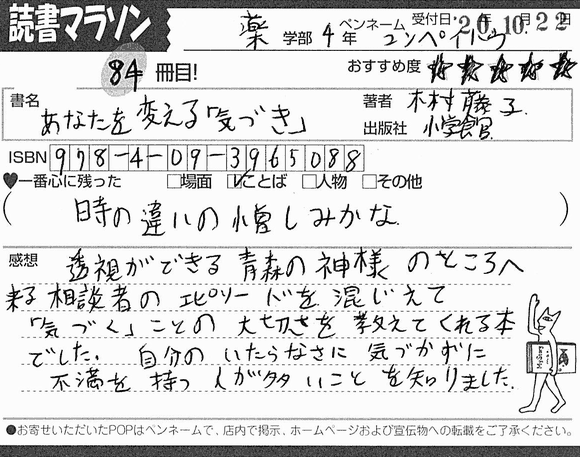 読書マラソン
薬 学部 4 年 ペンネーム コンペイトウ 受付日: 20 年 10 月 22 日
84 冊目! おすすめ度 ★★★★★
書名 あなたを変える「気づき」 著者 木村藤子
出版社 小学館
ISBN 978-4-09-3965088
♥一番心に残った □場面 ☑ことば □人物 □その他
( 時の違いの憎しみかな )
感想 透視ができる青森の神様のところへ
来る相談者のエピソードを混じえて
「気づく」ことの大切さを教えてくれる本
でした. 自分のいたらなさに気づかずに
不満を持つ人が多いことを知りました.
●お寄せいただいたPOPはペンネームで、店内で掲示、ホームページおよび宣伝物への転載をご了承ください。